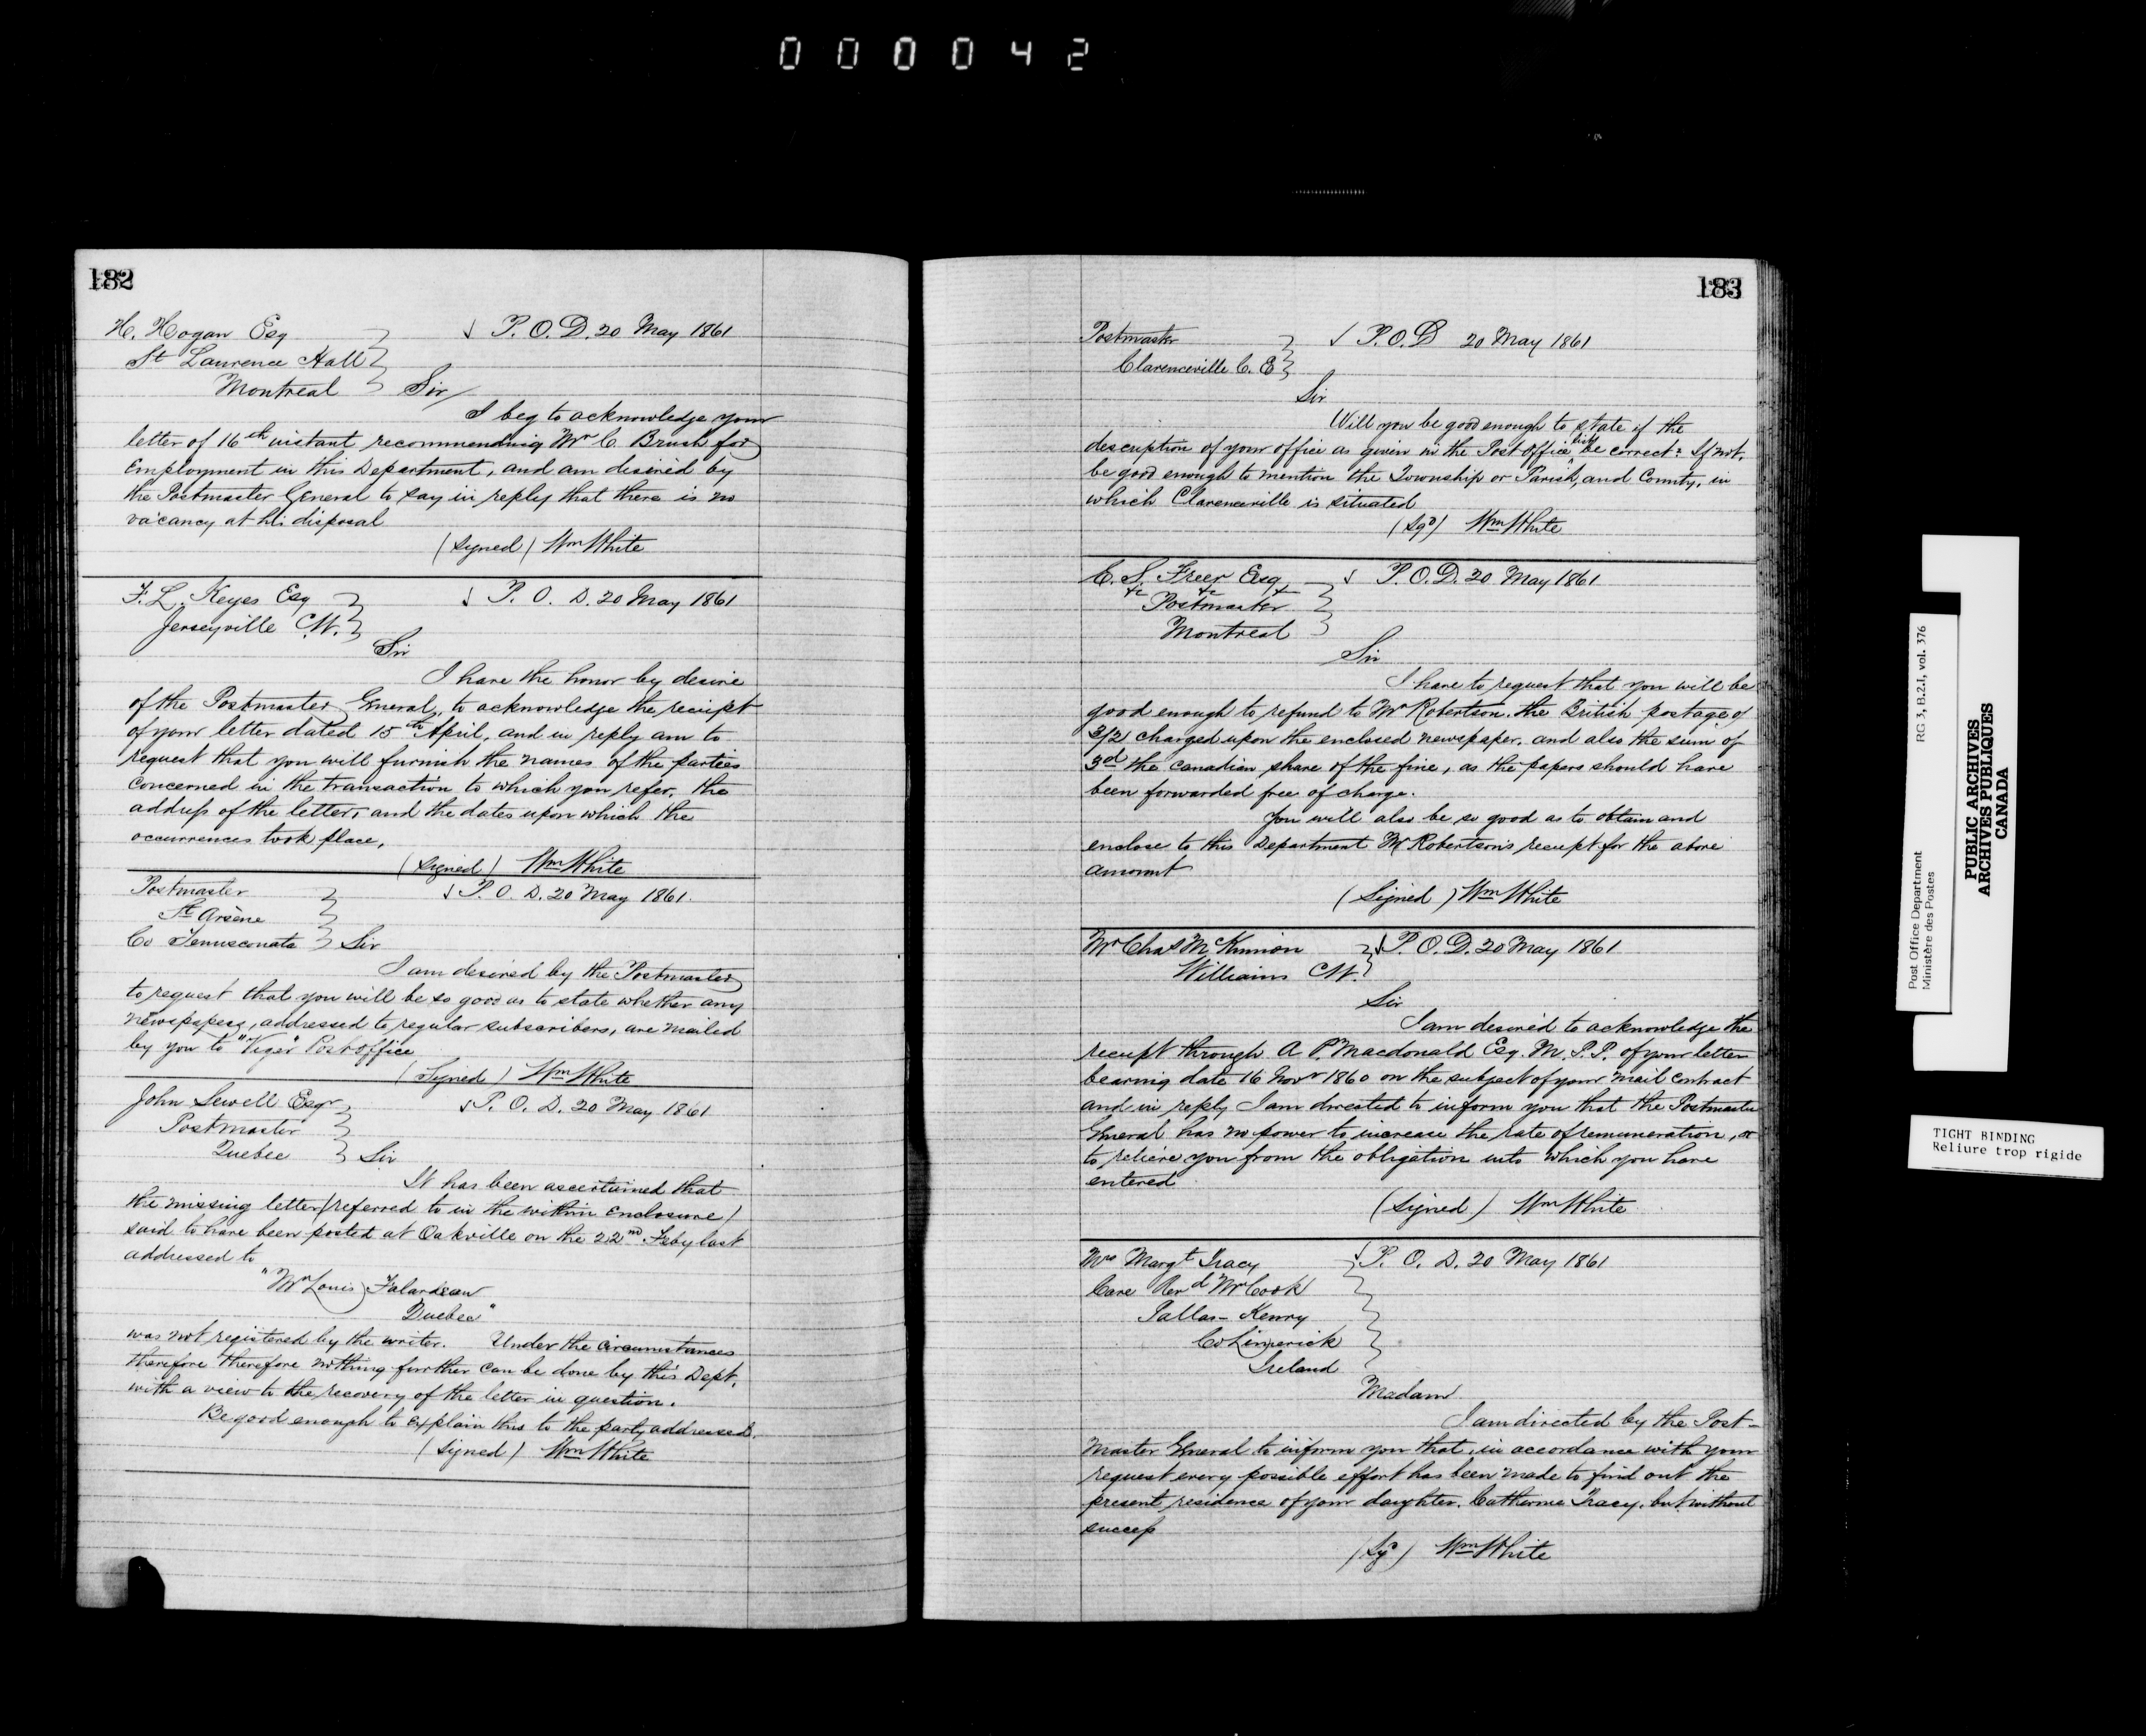 000042
182
H. Hogan Esq
St Laurence Hall
Montreal
P. O. D. 20 May 1861
Sir
I beg to acknowledge your
letter of 16th instant recommending Mr C. Brush for
Employment in this Department, and am desired by
the Postmaster General to say in reply that there is no
vacancy at his disposal
(signed) Wm White
F. L. Keyes Esq
Jerseyville C.W.
P. O. D. 20 May 1861
Sir
I have the honor by desire
of the Postmaster General, to acknowledge the receipt
of your letter dated 15th April, and in reply am to
request that you will furnish the names of the parties
concerned in the transaction to which you refer, the
address of the letters and the dates upon which the
occurrences took place,
(Signed) Wm White
Postmaster
St Arsène
Co Temisconata
P. O. D. 20 May 1861.
Sir
I am desired by the Postmaster
to request that you will be so good as to state whether any
newspapers, addressed to regular subscribers, are mailed
by you to "Viger" Post office
(Signed) Wm White
John Sewell Esqr
Postmaster
Quebec
P. O. D. 20 May 1861
Sir
It has been ascertained that
the missing letter (referred to in the within enclosure)
said to have been posted at Oakville on the 22nd Feby last
addressed to
"Mr Louis Falardeau
Quebec"
was not registered by the writer. Under the circumstances
therefore therefore nothing further can be done by this Dept.
with a view to the recovery of the letter in question.
Be good enough to explain this to the party addressed.
(Signed) Wm White
183
Postmaster
Clarenceville C. E
P. O. D 20 May 1861
Sir
Will you be good enough to state if the
description of your office as given in the Post office list be correct? If not,
be good enough to mention the Township or Parish, and County, in
which Clarenceville is situated
(Sgd) Wm White
E. S. Freer Esq
&c &c &c
Postmaster
Montreal
P. O. D. 20 May 1861
Sir
I have to request that you will be
good enough to refund to Mr Robertson, the British postage of
3/2 charged upon the enclosed newspaper, and also the sum of
3d the Canadian share of the fine, as the papers should have
been forwarded free of charge.
You will also be so good as to obtain and
enclose to this Department Mr Robertson's receipt for the above
amount
(Signed) Wm White
Mr Chas McKinnon
Williams C.W.
P. O. D. 20 May 1861
Sir
I am desired to acknowledge the
receipt through A P. Macdonald Esq. M. P. P. of your letter
bearing date 16 Novr 1860 on the subject of your mail contract
and in reply I am directed to inform you that the Postmaster
General has no power to increase the rate of remuneration, or
to relieve you from the obligation into which you have
entered
(Signed) Wm White
Mrs Margt Tracy
Care Revd Mr Cook
Pallas-Kenry
Co Limerick
Ireland
P. O. D. 20 May 1861
Madam
I am directed by the Post-
Master General to inform you that, in accordance with your
request every possible effort has been made to find out the
present residence of your daughter, Catherine Tracy, but without
success
(Sgd) Wm White
Post Office Department RG 3, B.2.I, vol. 376
Ministère des Postes
PUBLIC ARCHIVES
ARCHIVES PUBLIQUES
CANADA
TIGHT BINDING
Reliure trop rigide